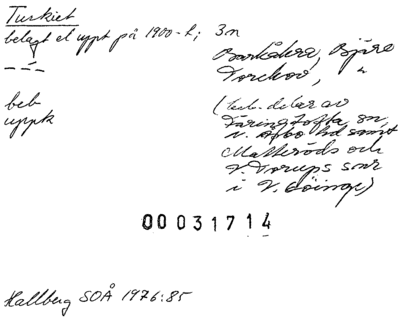 Turkiet
belagt el uppt på 1900-t; 3 n
Barkåkra, Bjäre
Torekov, "
beb
uppk
(tid. delar av
Färingtofta sn,
N. Åsbo hd samt
Matteröds och
V. Torups snr
i V. Göinge)
00031714
Hallberg SOÅ 1976:85